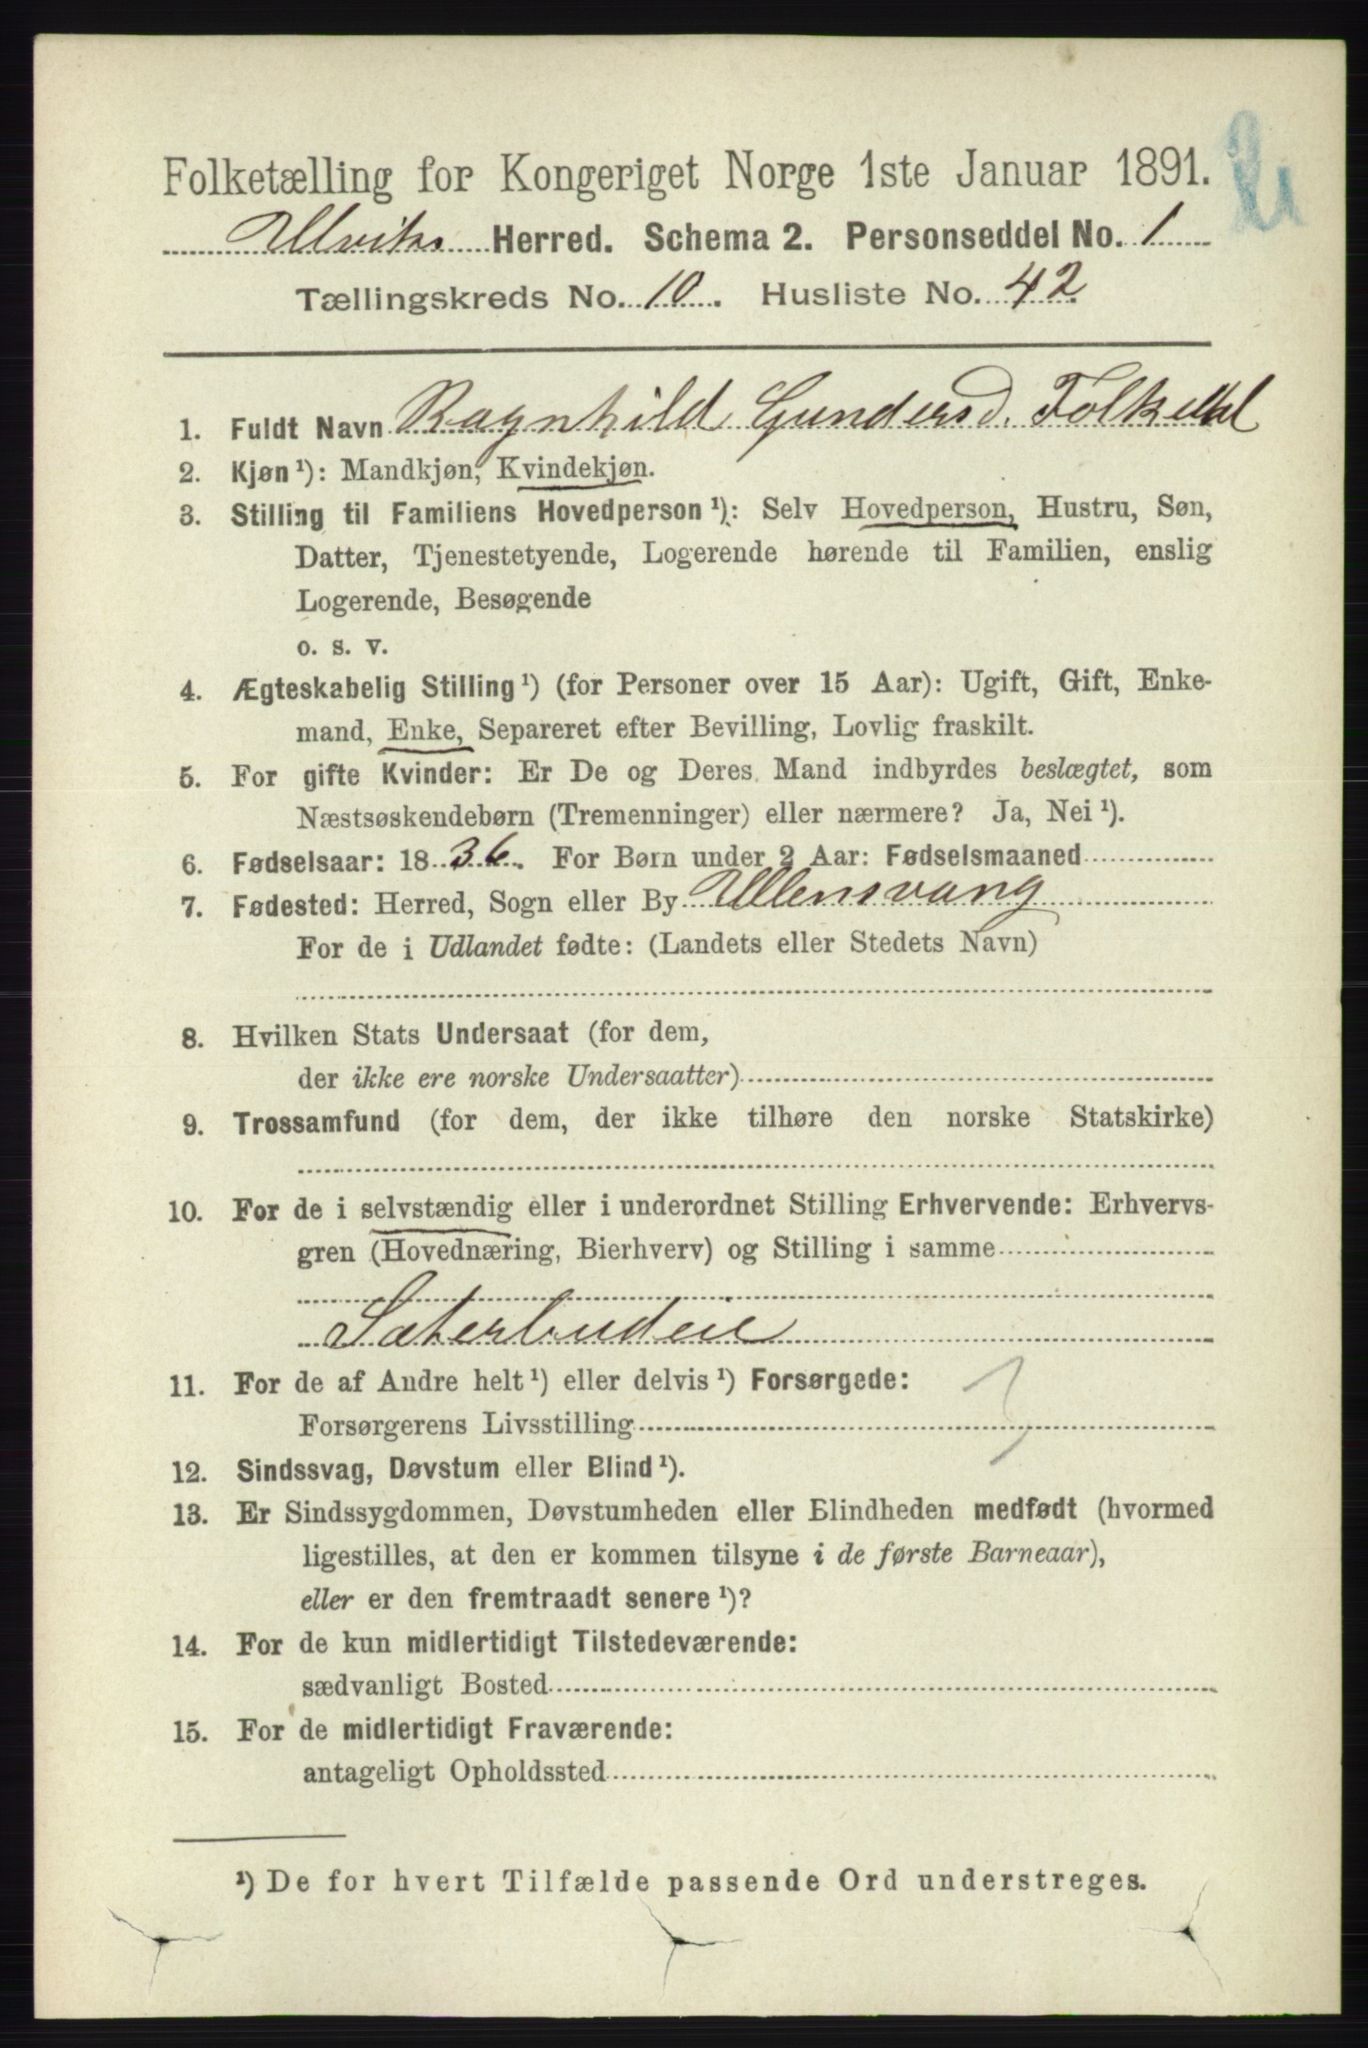 Folketælling for Kongeriget Norge 1ste Januar 1891.
Ulviks Herred. Schema 2. Personseddel No. 1
Tællingskreds No. 10. Husliste No. 42.
1. Fuldt Navn Ragnhild Gundersd. Folkedal
2. Kjøn ¹): Mandkjøn, Kvindekjøn.
3. Stilling til Familiens Hovedperson ¹): Selv Hovedperson, Hustru, Søn,
Datter, Tjenestetyende, Logerende hørende til Familien, enslig
Logerende, Besøgende
o. s. v.
4. Ægteskabelig Stilling ¹) (for Personer over 15 Aar): Ugift, Gift, Enke-
mand, Enke, Separeret efter Bevilling, Lovlig fraskilt.
5. For gifte Kvinder: Er De og Deres Mand indbyrdes beslægtet, som
Næstsøskendebørn (Tremenninger) eller nærmere? Ja, Nei ¹).
6. Fødselsaar: 1836. For Børn under 2 Aar: Fødselsmaaned
7. Fødested: Herred, Sogn eller By Ullensvang
For de i Udlandet fødte: (Landets eller Stedets Navn)
8. Hvilken Stats Undersaat (for dem,
der ikke ere norske Undersaatter)
9. Trossamfund (for dem, der ikke tilhøre den norske Statskirke)
10. For de i selvstændig eller i underordnet Stilling Erhvervende: Erhvervs-
gren (Hovednæring, Bierhverv) og Stilling i samme
Sæterbudeie
11. For de af Andre helt ¹) eller delvis ¹) Forsørgede:
Forsørgerens Livsstilling
12. Sindssvag, Døvstum eller Blind ¹).
13. Er Sindssygdommen, Døvstumheden eller Blindheden medfødt (hvormed
ligestilles, at den er kommen tilsyne i de første Barneaar),
eller er den fremtraadt senere ¹)?
14. For de kun midlertidigt Tilstedeværende:
sædvanligt Bosted
15. For de midlertidigt Fraværende:
antageligt Opholdssted
¹) De for hvert Tilfælde passende Ord understreges.